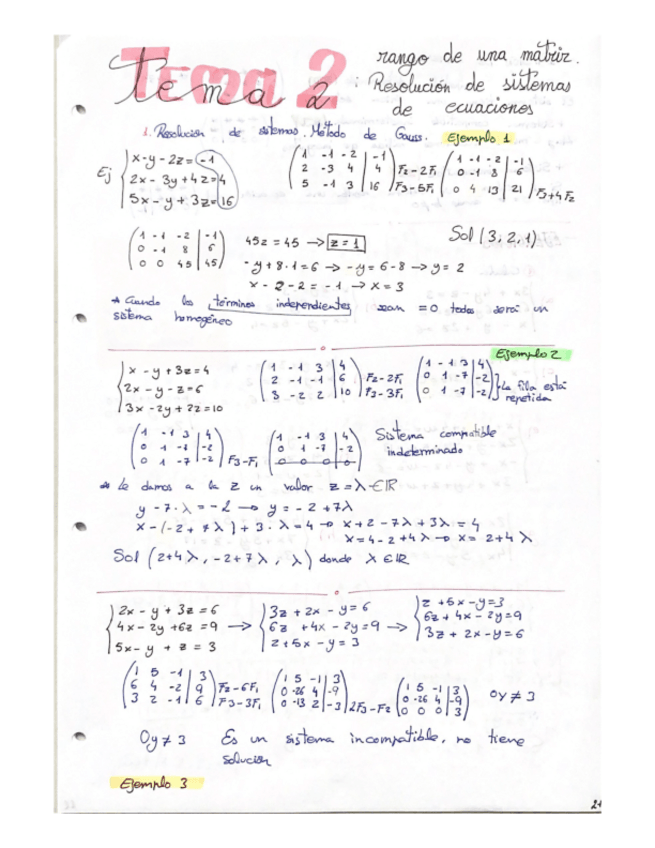 Tema 2
tema 2 : rango de una matriz.
Resolución de sistemas
de ecuaciones
1. Resolución de sistemas. Método de Gauss. Ejemplo 1
Ej { x-y-2z=-1
2x-3y+4z=4
5x-y+3z=16
( 1 -1 -2 | -1 )
( 2 -3 4 | 4 ) F2-2F1
( 5 -1 3 | 16 ) F3-5F1
( 1 -1 -2 | -1 )
( 0 -1 8 | 6 )
( 0 4 13 | 21 ) F3+4F2
( 1 -1 -2 | -1 )
( 0 -1 8 | 6 )
( 0 0 45 | 45 )
45z = 45 → z = 1
Sol (3, 2, 1)
-y+8·1=6 → -y=6-8 → y= 2
x-2-2=-1 → x=3
* Cuando los términos independientes sean =0 todos será un
sistema homogéneo
Ejemplo 2
{ x-y+3z=4
2x-y-z=6
3x-2y+2z=10
( 1 -1 3 | 4 )
( 2 -1 -1 | 6 ) F2-2F1
( 3 -2 2 | 10 ) F3-3F1
( 1 -1 3 | 4 )
( 0 1 -7 | -2 )
( 0 1 -7 | -2 ) } La fila está
repetida
( 1 -1 3 | 4 )
( 0 1 -7 | -2 )
( 0 1 -7 | -2 ) F3-F1
( 1 -1 3 | 4 )
( 0 1 -7 | -2 )
( 0 0 0 | 0 )
Sistema compatible
indeterminado
* Le damos a la z un valor z=λ∈IR
y-7·λ=-2 → y=-2+7λ
x-(-2+7λ)+3·λ=4 → x+2-7λ+3λ=4
x=4-2+4λ → x=2+4λ
Sol (2+4λ, -2+7λ, λ) donde λ∈IR
{ 2x-y+3z=6
4x-2y+6z=9
5x-y+z=3
→ { 3z+2x-y=6
6z+4x-2y=9
z+5x-y=3
→ { z+5x-y=3
6z+4x-2y=9
3z+2x-y=6
( 1 5 -1 | 3 )
( 6 4 -2 | 9 ) F2-6F1
( 3 2 -1 | 6 ) F3-3F1
( 1 5 -1 | 3 )
( 0 -26 4 | -9 )
( 0 -13 2 | -3 ) 2F3-F2
( 1 5 -1 | 3 )
( 0 -26 4 | -9 )
( 0 0 0 | 3 )
0y ≠ 3
0y ≠ 3 Es un sistema incompatible, no tiene
solución
Ejemplo 3